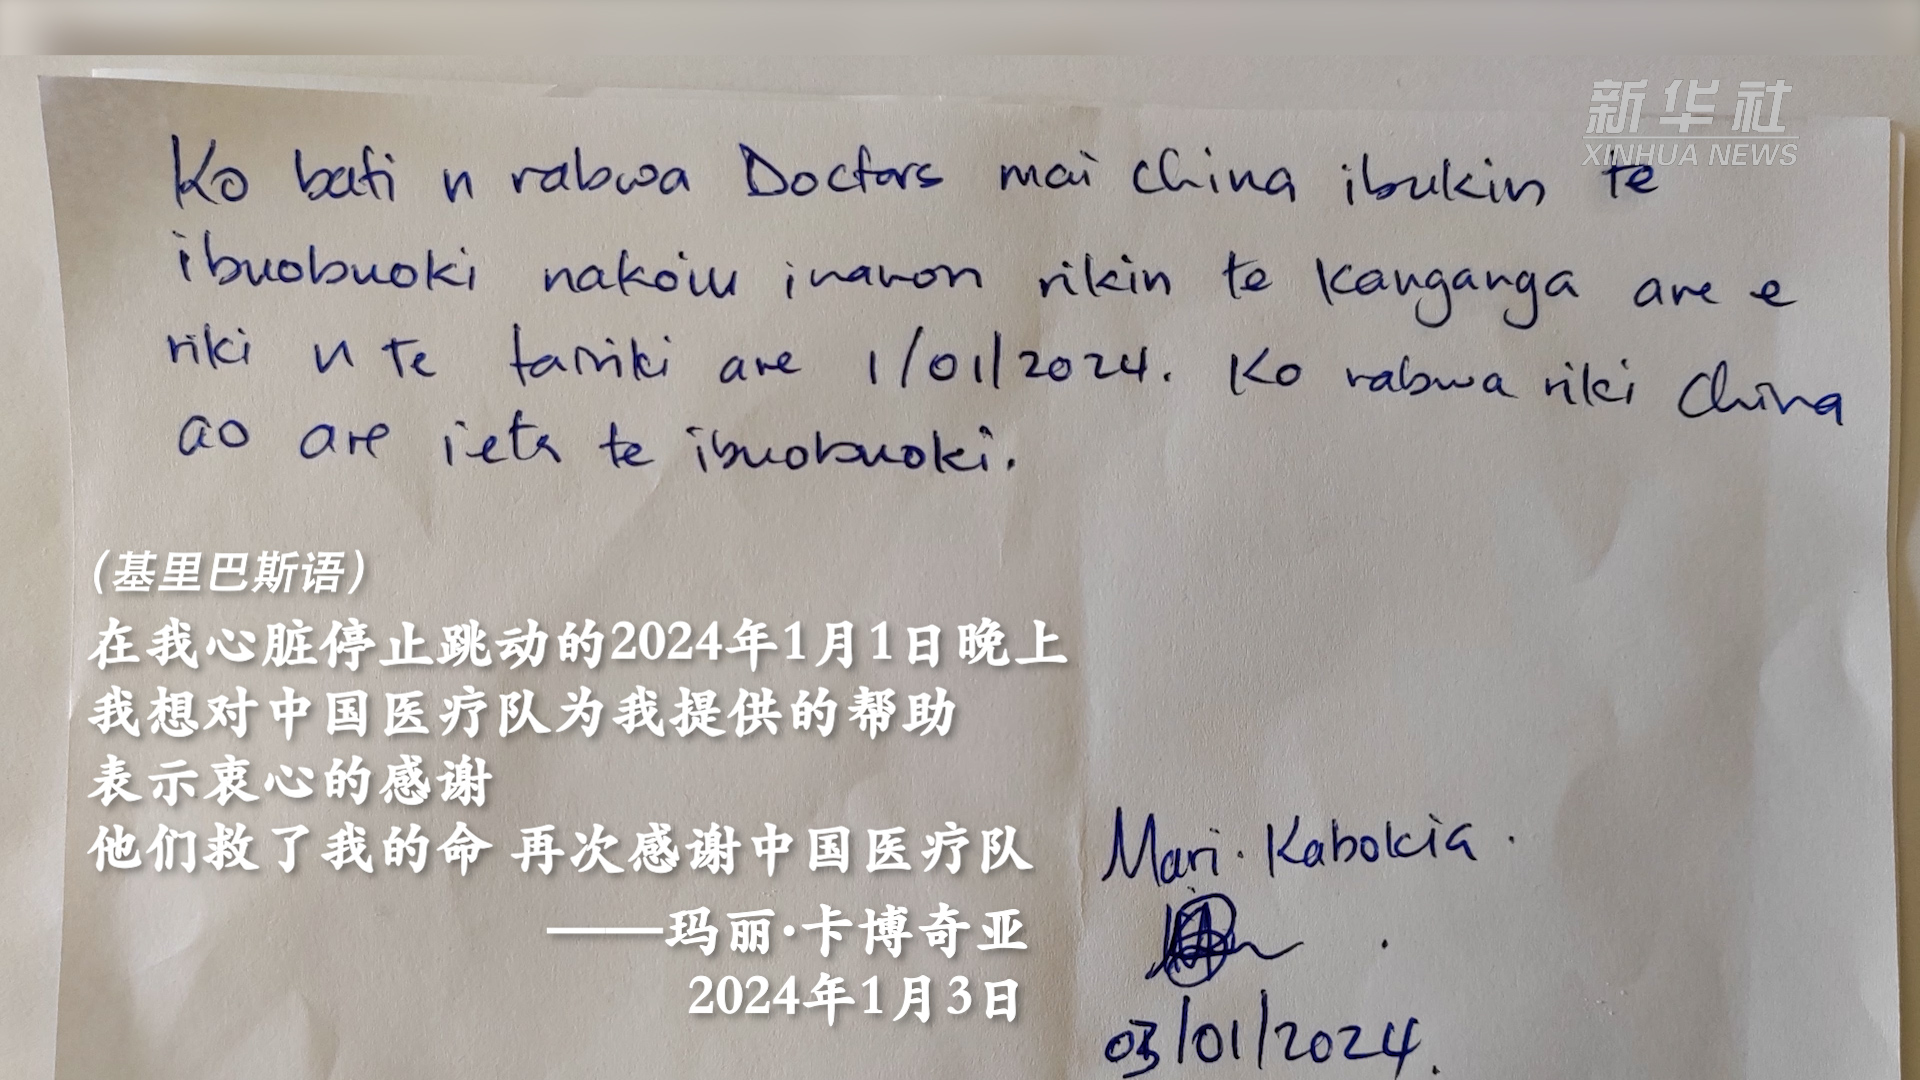 新华社
XINHUA NEWS
Ko bati n rabwa Doctors mai China ibukin te
ibuobuoki nakoiu inanon rikin te kanganga are e
riki n te tariki are 1/01/2024. Ko rabwa riki China
ao are ieta te ibuobuoki.
（基里巴斯语）
在我心脏停止跳动的2024年1月1日晚上
我想对中国医疗队为我提供的帮助
表示衷心的感谢
他们救了我的命 再次感谢中国医疗队
——玛丽·卡博奇亚
2024年1月3日
Mari. Kabokia.
03/01/2024.